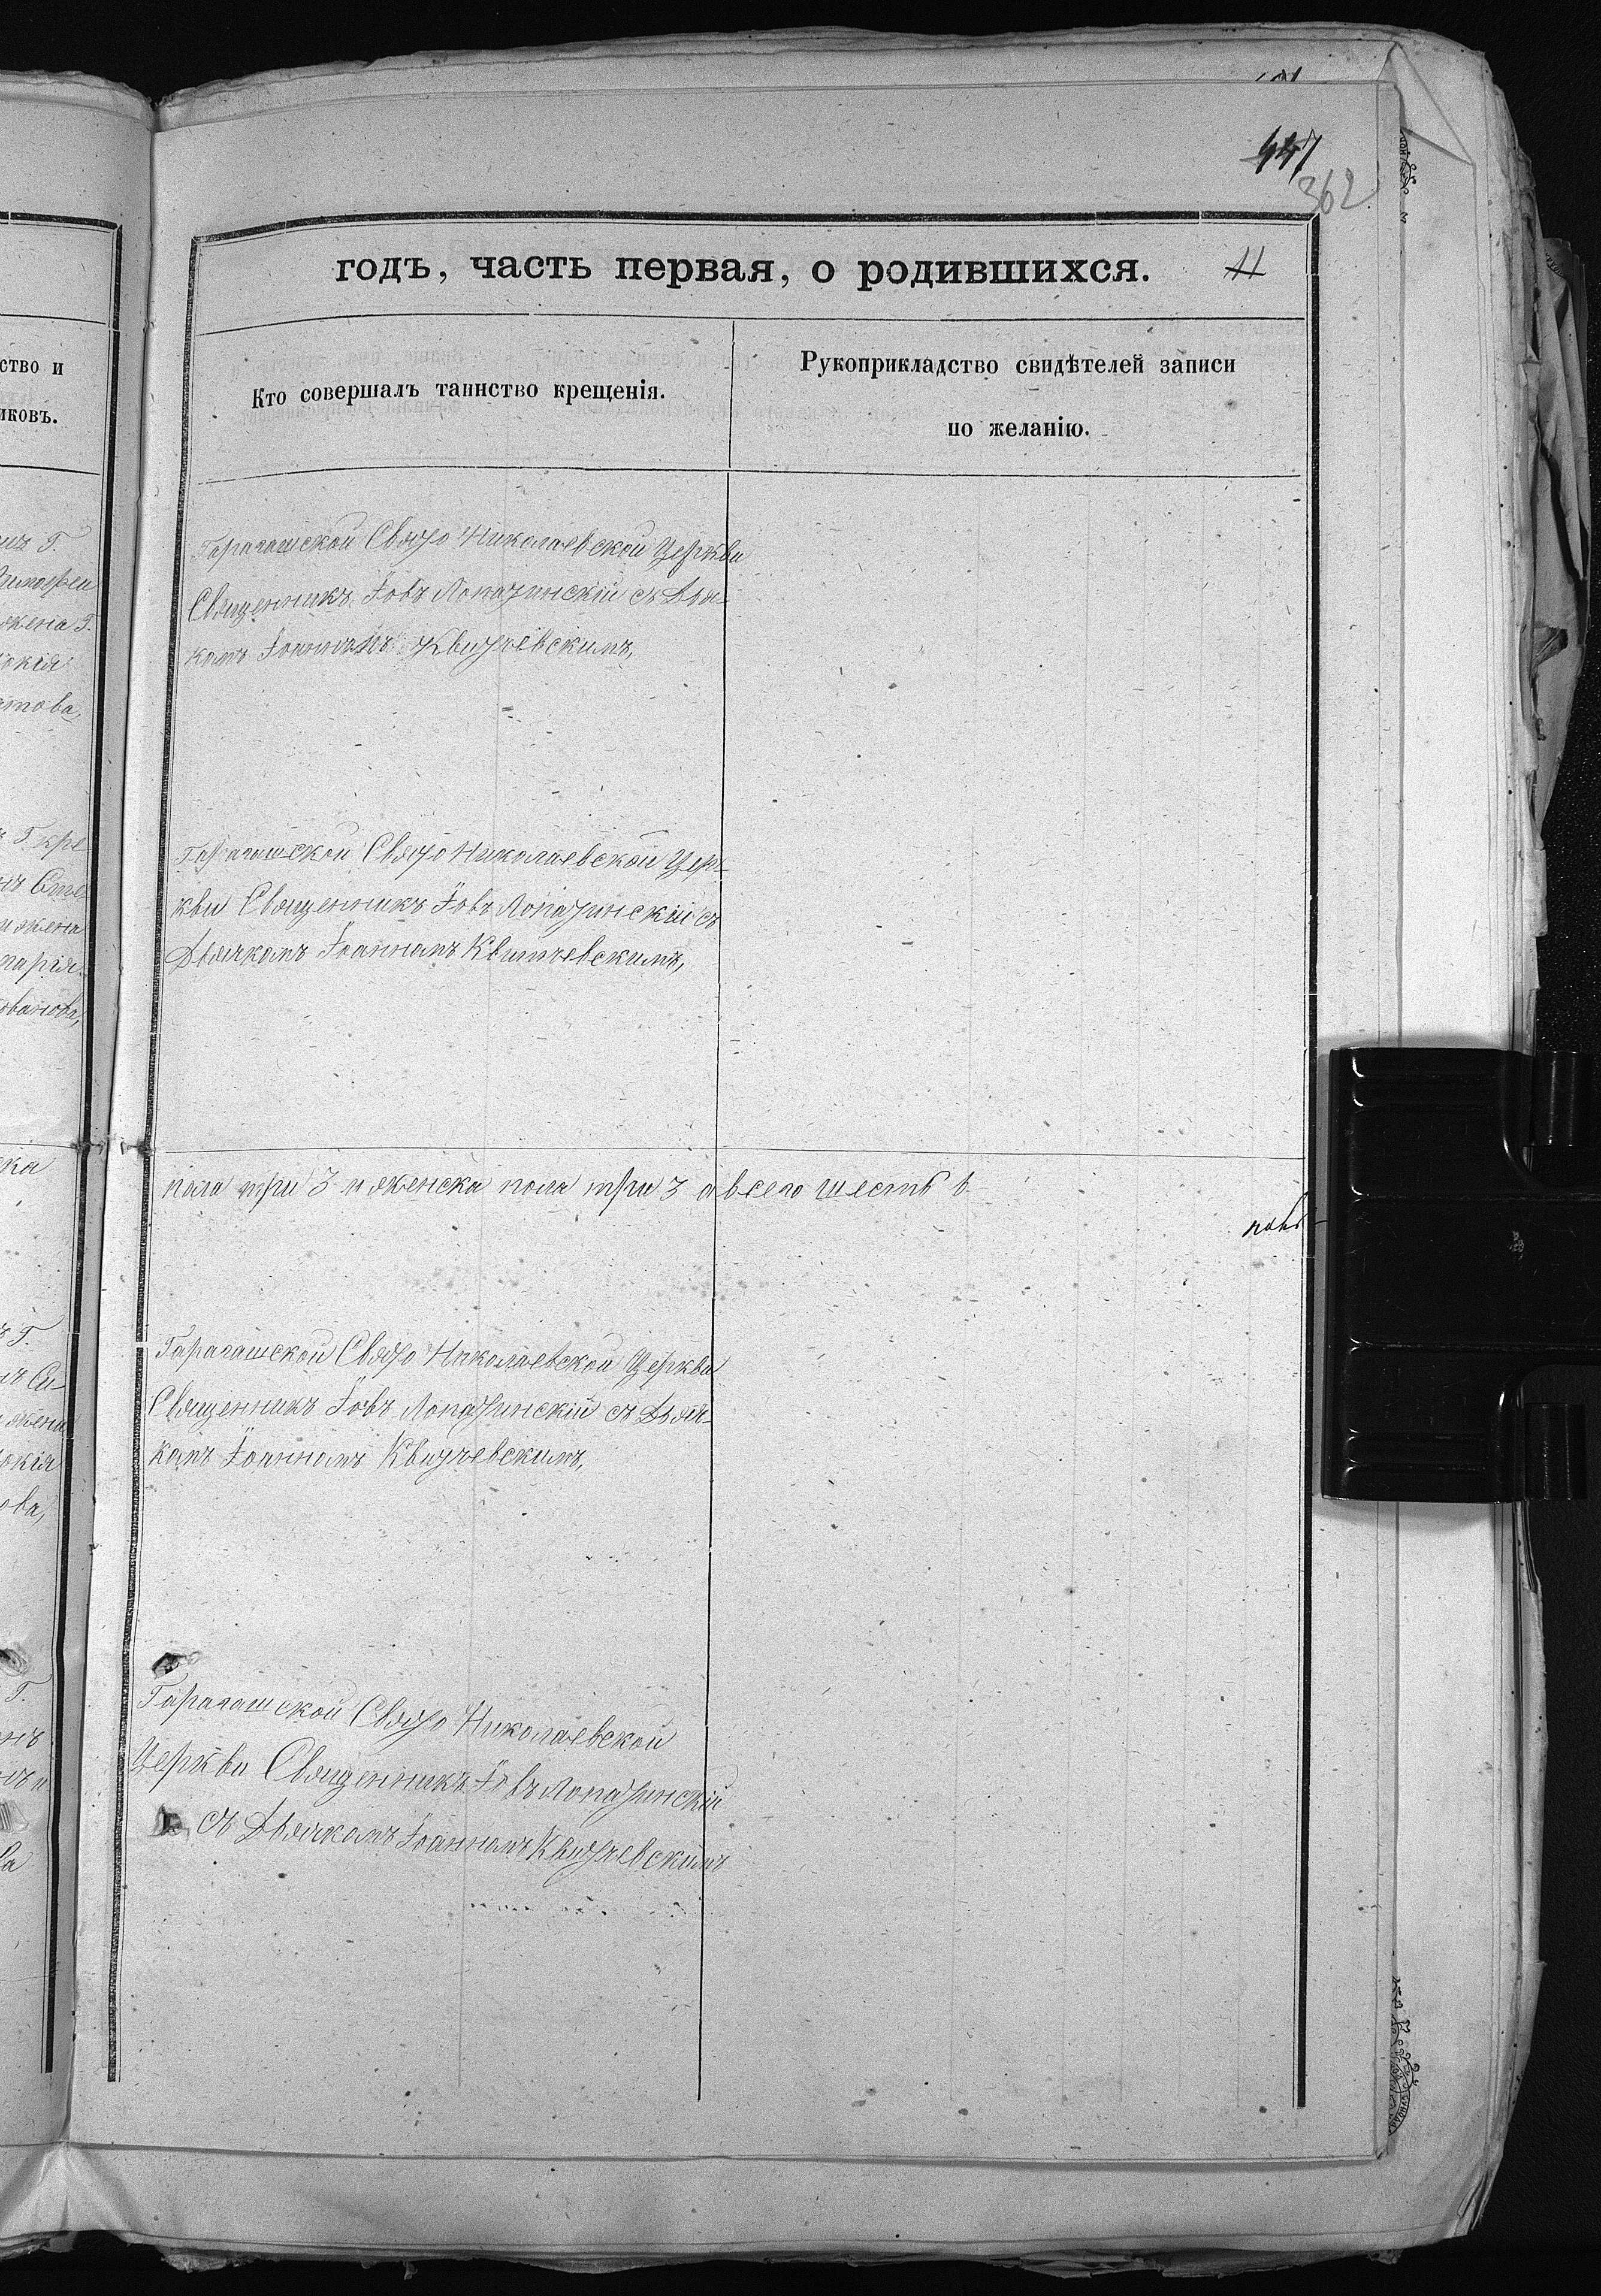 447
362
годъ, часть первая, о родившихся.
11
ство и
иковъ.
Кто совершалъ таинство крещенія.
Рукоприкладство свидѣтелей записи
по желанію.
Гарагашской Свято Николаевской Церкви
Священникъ Іовъ Лопатинскій съ Дьяч-
комъ Іоанномъ Квитчевскимъ,
Гарагашской Свято Николаевской Цер-
кви Священникъ Іовъ Лопатинскій съ
Дьячкомъ Іоанномъ Квитчевскимъ,
пола три 3 и женска пола три 3 а всего шесть 6
Гарагашской Свято Николаевской Церкви
Священникъ Іовъ Лопатинскій съ Дьяч-
комъ Іоанномъ Квитчевскимъ,
Гарагашской Свято Николаевской
Церкви Священникъ Іовъ Лопатинскій
съ Дьячкомъ Іоанномъ Квитчевскимъ